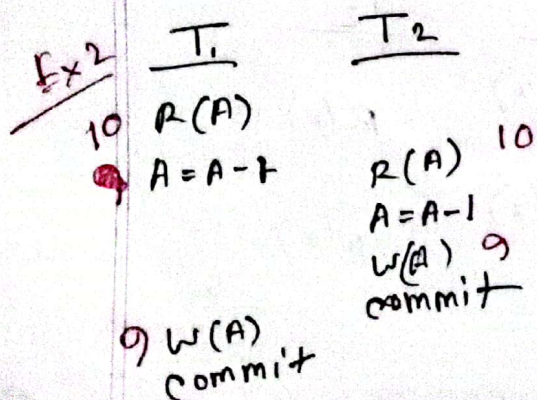 Ex2 T1 T2
10 R(A)
A = A-1
R(A) 10
A = A-1
W(A) 9
commit
9 W(A)
commit